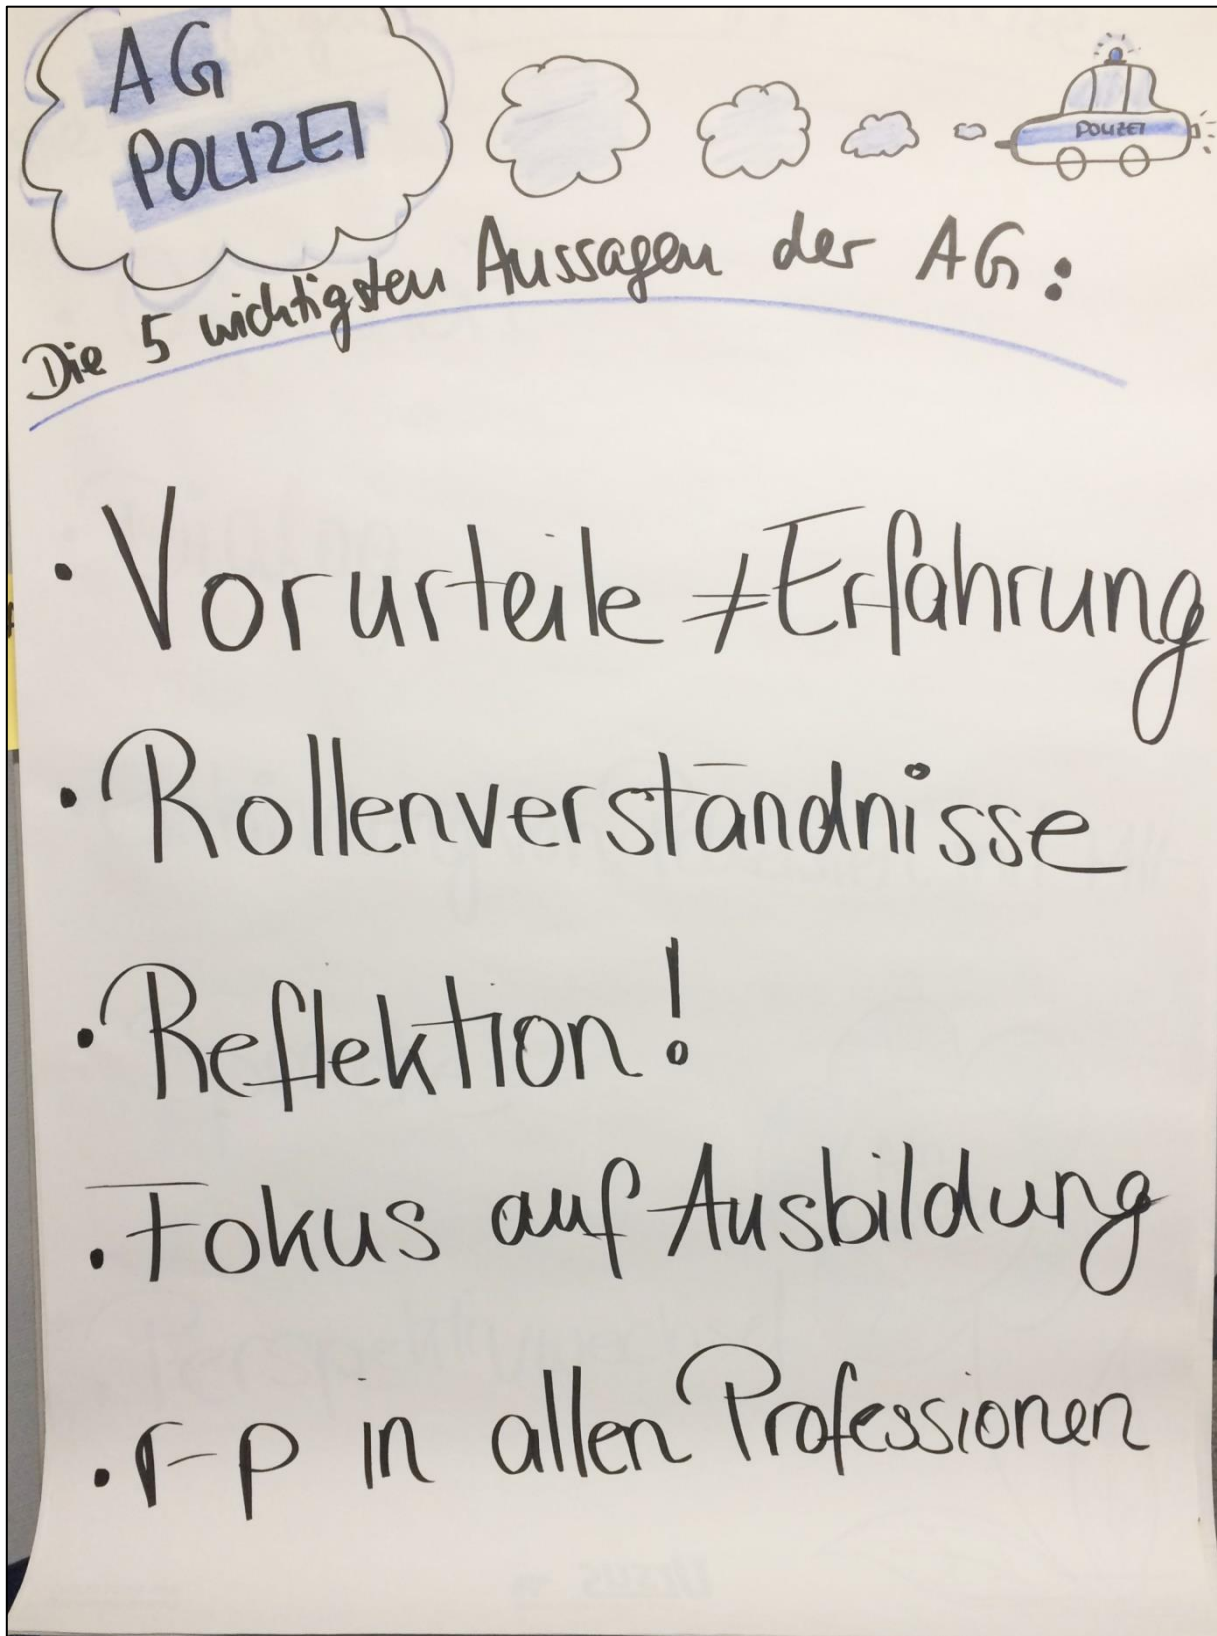 AG
POLIZEI
POLIZEI
Die 5 wichtigsten Aussagen der AG:
• Vorurteile ≠ Erfahrung
• Rollenverständnisse
• Reflektion!
• Fokus auf Ausbildung
• r-p in allen Professionen